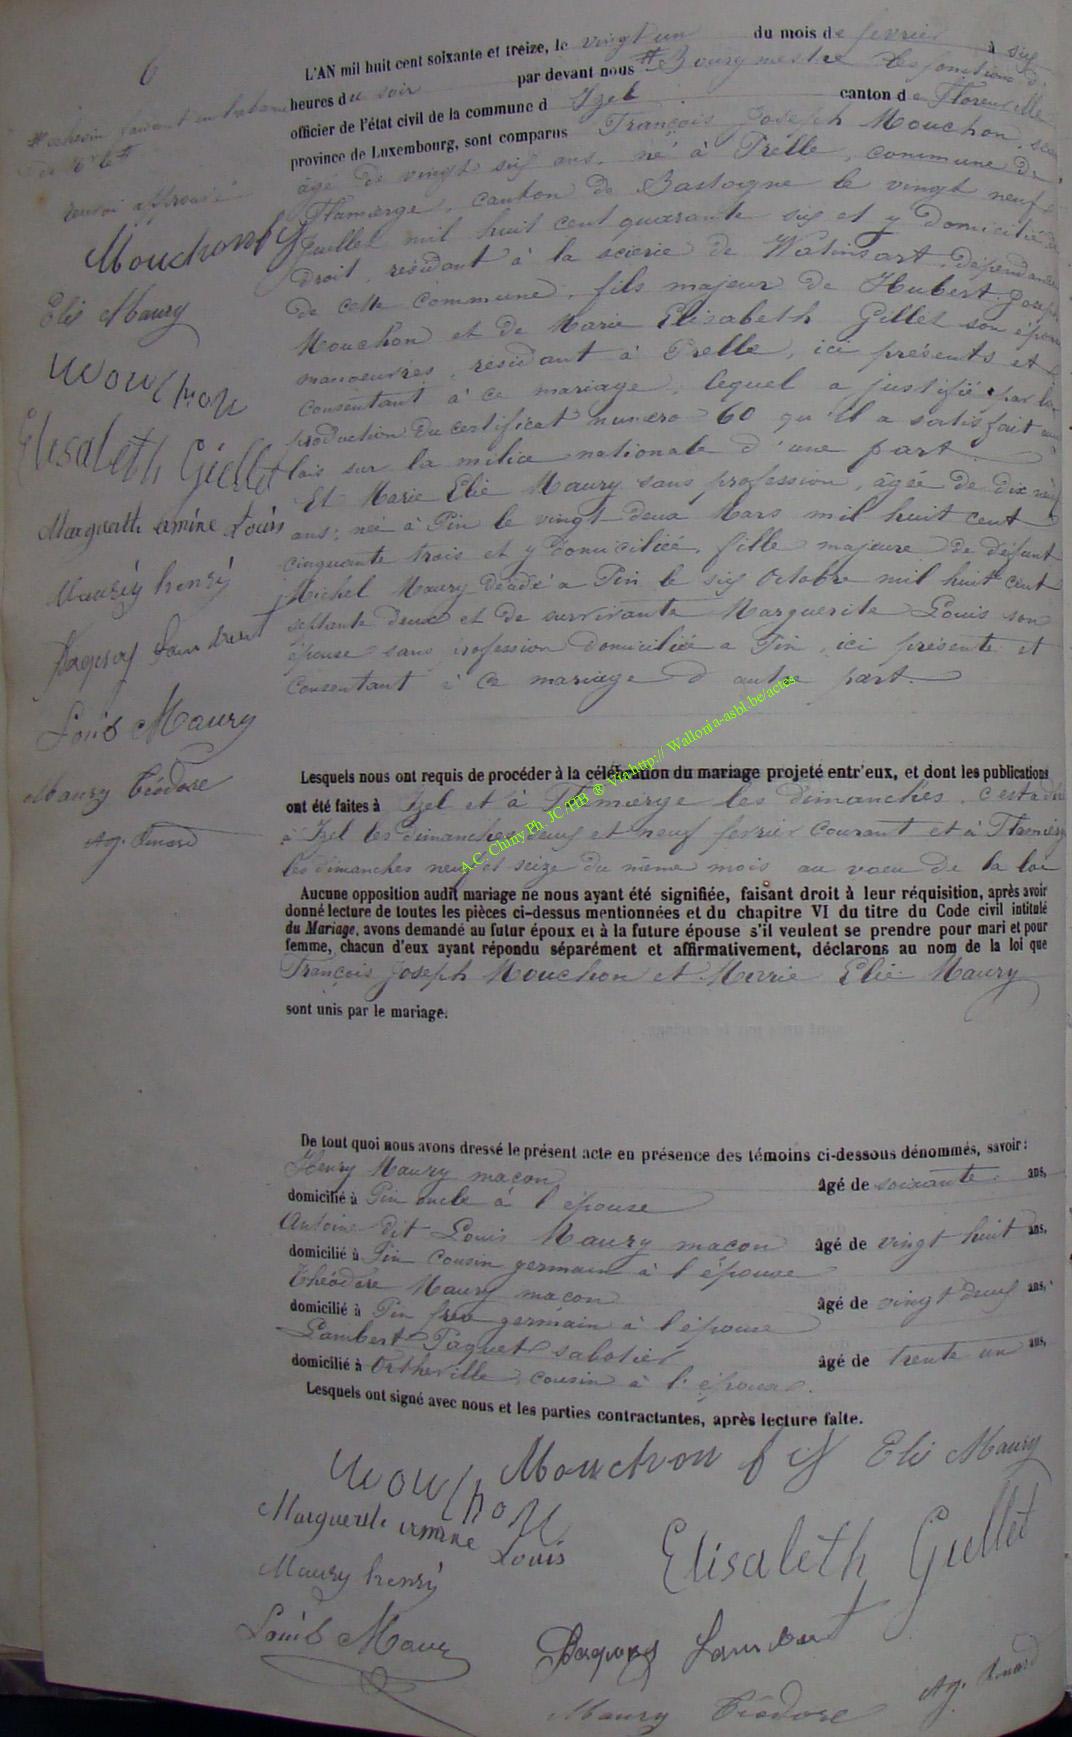 6
renvoi approuvé
Mouchon fils
Elie Maury
Mouchon
Elisabeth Giellet
Marguerite ermine Louis
Mauriy henry
Lambert
Louis Maury
Maury Téodore
L'AN mil huit cent soixante et treize, le vingt un du mois de fevrier à six
heures du soir par devant nous # Bourgmestre
officier de l'état civil de la commune d Izel canton de Florenville
province de Luxembourg, sont comparus François Joseph Mouchon,
âgé de vingt six ans, né à Prelle, commune de
Flamierge, canton de Bastogne le vingt neuf
Juillet mil huit cent quarante six et y domicilié de
droit, résidant à la scierie de Watinsart, dépendance
de cette commune, fils majeur de Hubert Joseph
Mouchon et de Marie Elisabeth Gillet son épouse
manoeuvres, résidant à Prelle, ici présents et
consentant à ce mariage, lequel a justifié par la
production du certificat numéro 60 qu'il a satisfait aux
lois sur la milice nationale d'une part.
Et Marie Elie Maury sans profession, âgée de dix neuf
ans, née à Pin le vingt deux Mars mil huit cent
cinquante trois et y domiciliée, fille majeure de défunt
Michel Maury décédé a Pin le six Octobre mil huit cent
septante deux et de survivante Marguerite Louis son
épouse sans profession domiciliée a Pin, ici présente et
consentant à ce mariage d autre part.
Lesquels nous ont requis de procéder à la célébration du mariage projeté entr'eux, et dont les publications
ont été faites à Izel et à Flamierge les dimanches, c'est a dire
à Izel les dimanches deux et neuf fevrier courant et a Flamierge
les dimanches neuf et seize du même mois au voeu de la loi
Aucune opposition audit mariage ne nous ayant été signifiée, faisant droit à leur réquisition, après avoir
donné lecture de toutes les pièces ci-dessus mentionnées et du chapitre VI du titre du Code civil intitulé
du Mariage, avons demandé au futur époux et à la future épouse s'il veulent se prendre pour mari et pour
femme, chacun d'eux ayant répondu séparément et affirmativement, déclarons au nom de la loi que
François Joseph Mouchon et Marie Elie Maury
sont unis par le mariage.
De tout quoi nous avons dressé le présent acte en présence des témoins ci-dessous dénommés, savoir:
Henry Maury macon âgé de soixante ans,
domicilié à Pin oncle à l'épouse
Antoine dit Louis Maury macon âgé de vingt huit ans,
domicilié à Pin cousin germain à l'épouse
Théodore Maury macon âgé de vingt deux ans,
domicilié à Pin frère germain à l'épouse
Lambert Paquet sabotier âgé de trente un ans,
domicilié à Ortheville, cousin à l'épouse.
Lesquels ont signé avec nous et les parties contractantes, après lecture faite.
Mouchon Mouchon fils Elie Maury
Marguerite ermine Louis
Elisabeth Guillet
Maury henry
Louis Maury
Lambert
Maury Téodore
A.C. Chiny Ph. JC/HB ® Via http:// Wallonia-asbl.be/actes